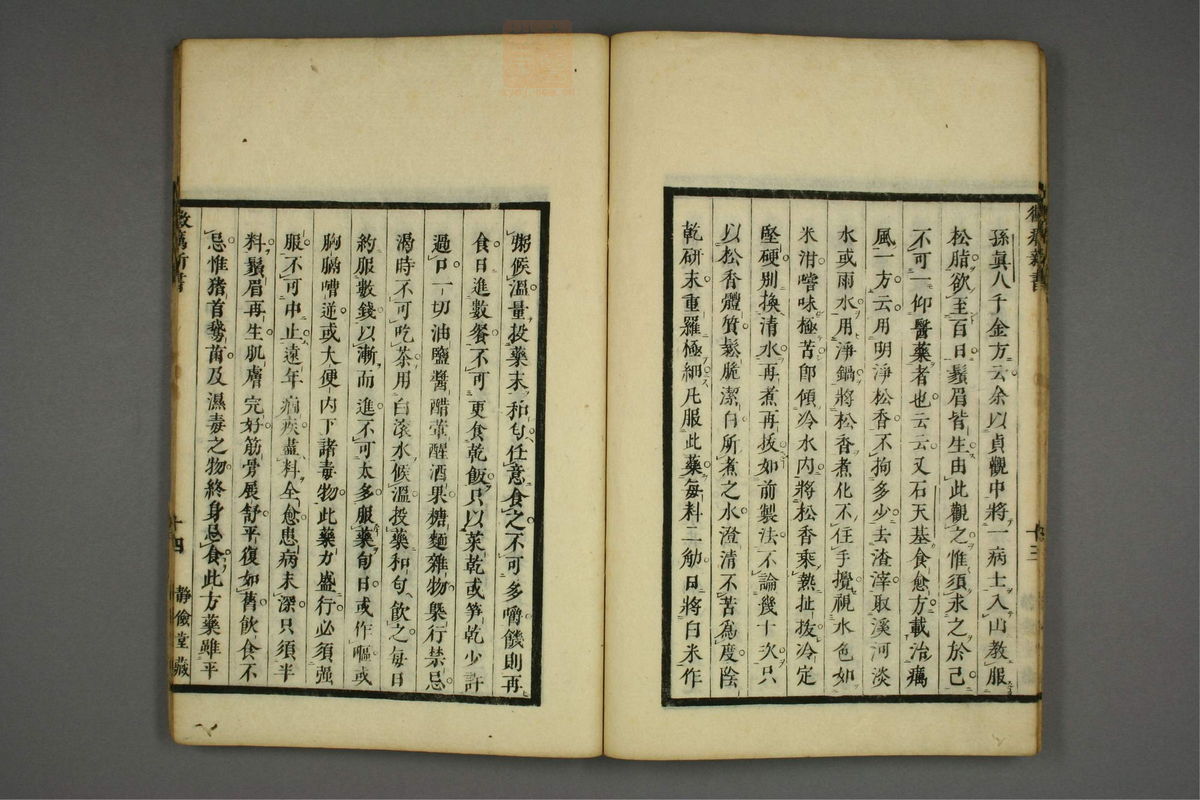 孫眞人千金方云余以貞觀中將一病士入山教服
松脂欲至百日鬚眉皆生由此觀之惟須求之於己
不可一仰醫藥者也云云又石天基食愈方載治癘
風一方云用明淨松香不拘多少去渣滓取溪河淡
水或雨水用淨鍋將松香煮化不住手攪視水色如
米泔嚐味極苦卽傾冷水內將松香乘熱扯拔冷定
堅硬別換清水再煮再拔如前製法不論幾十次只
以松香體質鬆脆潔白所煮之水澄清不苦爲度陰
乾研末重羅極細凡服此藥每料二觔日將白米作
十三
粥候溫量投藥末和勻任意食之不可多嚼饑則再
食日進數餐不可更食乾飯只以菜乾或笋乾少許
過口一切油鹽醬醋葷醒酒果糖麵雜物槩行禁忌
渴時不可吃茶用白滾水候溫投藥和勻飲之每日
約服數錢以漸而進不可太多服藥旬日或作嘔或
胸膈嘈逆或大便內下諸毒物此藥力盛行必須强
服不可中止遠年痼疾盡料全愈患病未深只須半
料鬚眉再生肌膚完好筋骨展舒平復如舊飲食不
忌惟猪首鵞菌及濕毒之物終身忌食此方藥雖平
十四
靜儉堂藏